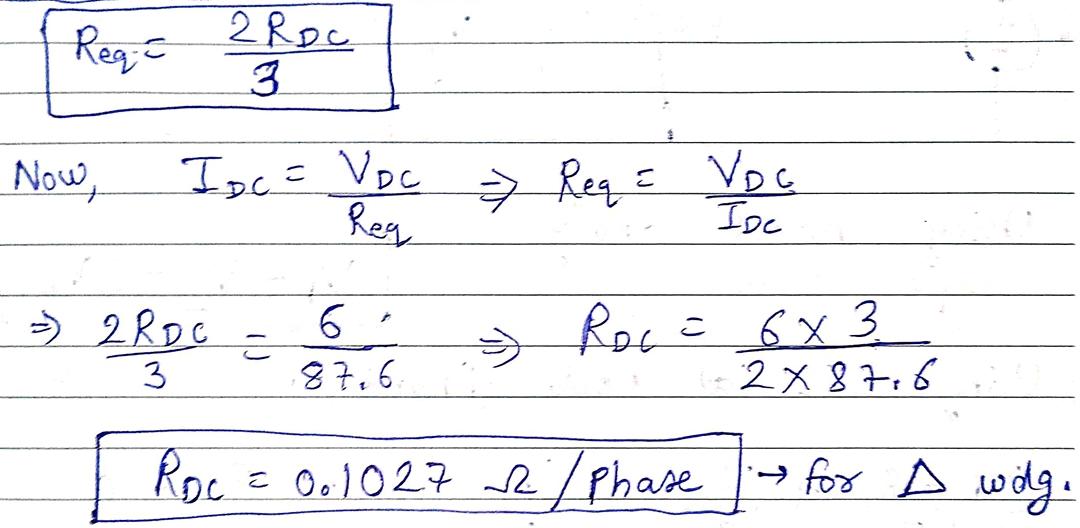 Req = 2RDC/3
Now, IDC = VDC/Req ⇒ Req = VDC/IDC
⇒ 2RDC/3 = 6/87.6 ⇒ RDC = 6 × 3/2 × 87.6
RDC = 0.1027 Ω/phase → for Δ wdg.